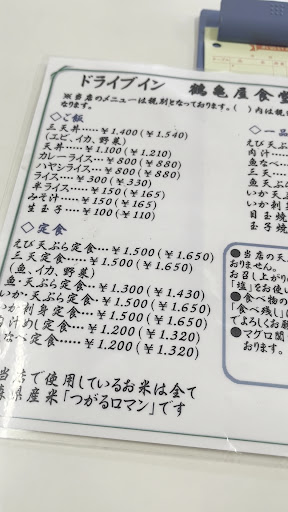 ドライブイン 鶴亀屋食堂
※当店のメニューは税別となっております。( )内は税
なります。
◇ご飯
三天丼……¥1,400(¥1,540)
(エビ、イカ、野菜)
天丼……¥1,100(¥1,210)
カレーライス…¥800(¥880)
ハヤシライス…¥800(¥880)
ライス……¥300(¥330)
半ライス……¥150(¥165)
みそ汁……¥150(¥165)
生玉子……¥100(¥110)
◇定食
えび天ぷら定食…¥1,500(¥1,650)
三天定食……¥1,500(¥1,650)
(魚、イカ、野菜)
魚・天ぷら定食…¥1,300(¥1,430)
いか・天ぷら定食…¥1,500(¥1,650)
いか刺身定食…¥1,500(¥1,650)
肉汁めし定食…¥1,200(¥1,320)
魚なべ定食……¥1,200(¥1,320)
当店で使用しているお米は全て
森県産米「つがるロマン」です
◇一品
肉汁
魚なべ
えび天
三天…
魚天ぷ
いか天
いか刺
目玉焼
玉子焼
●当店の天
おりません。
お召し上がり
「塩」をお使い
●食べ物の
「食べ残し」に
でよろしくお願
●マグロ関
おります。